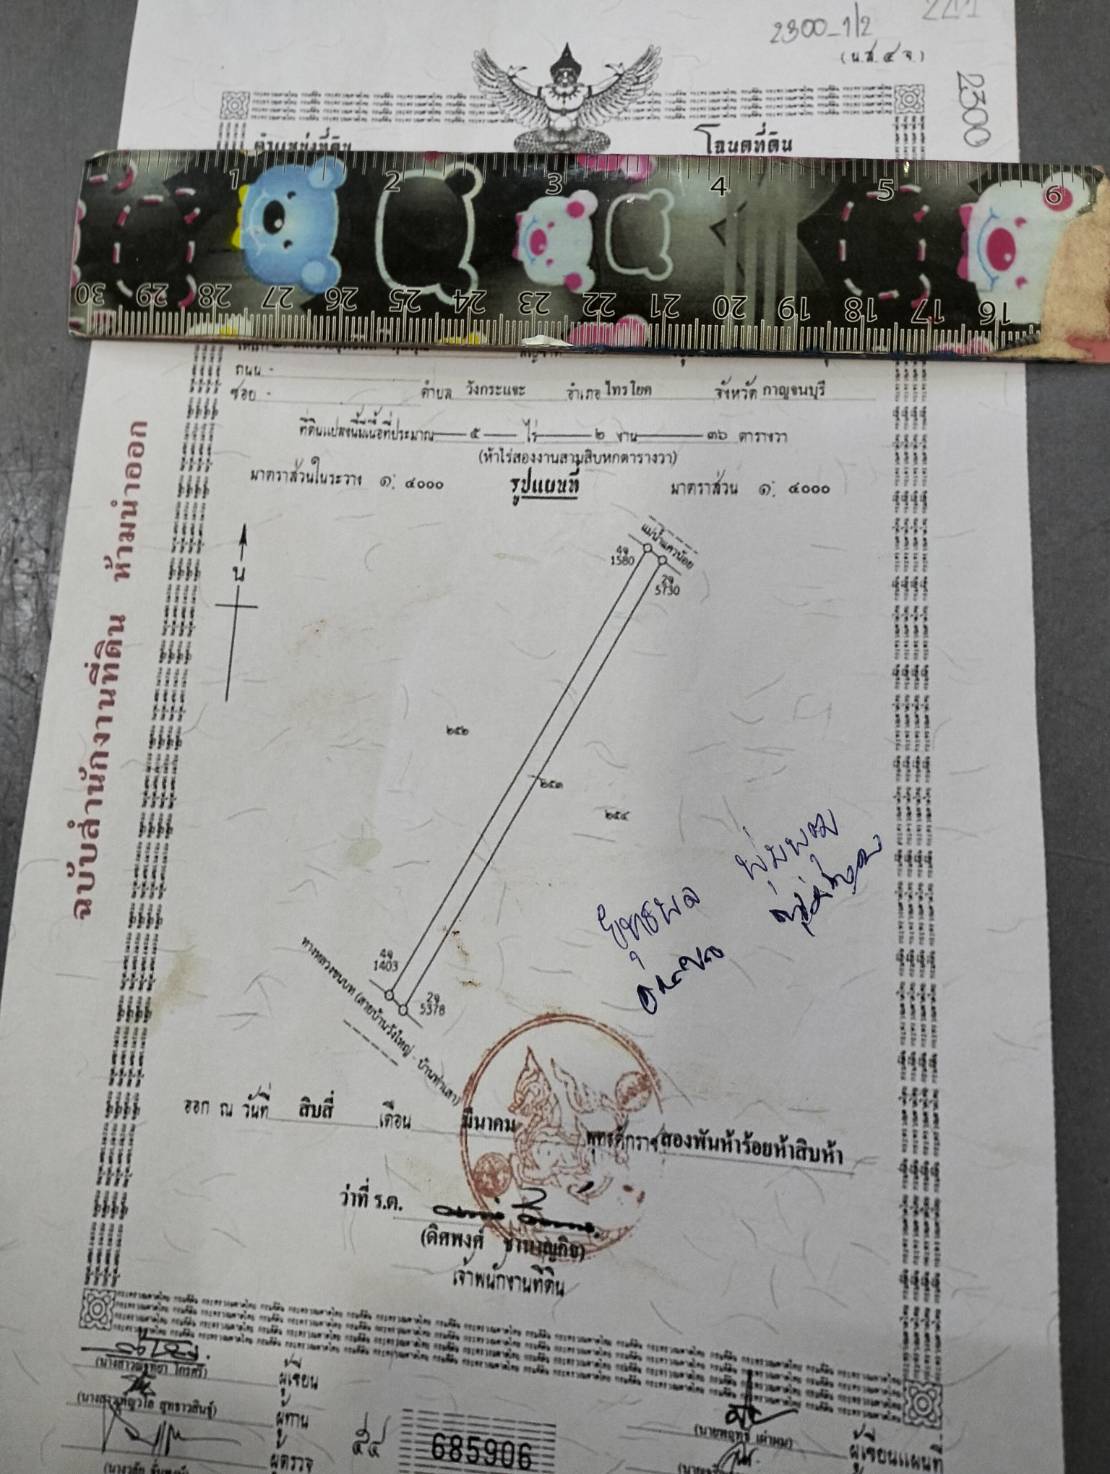 2300-1/2
(น.ส.๔ จ.)
2300
ตำแหน่งที่ดิน
โฉนดที่ดิน
1 2 3 4 5 6
30 29 28 27 26 25 24 23 22 21 20 19 18 17 16
ถนน -
ซอย - ตำบล วังกระแจะ อำเภอ ไทรโยค จังหวัด กาญจนบุรี
ที่ดินแปลงนี้มีเนื้อที่ประมาณ ๕ ไร่ ๒ งาน ๓๖ ตารางวา
(ห้าไร่สองงานสามสิบหกตารางวา)
มาตราส่วนในระวาง ๑: ๔๐๐๐ รูปแผนที่ มาตราส่วน ๑: ๔๐๐๐
ฉบับสำนักงานที่ดิน ห้ามนำออก
น
แม่น้ำแควน้อย
4จ
1580
2จ
5730
๒๕๒
๒๕๓
๒๕๔
ยุทธพล
พุ่มพวง
4จ
1403
2จ
5378
ทางหลวงชนบท (สายบ้านวังใหญ่ - บ้านท่าเสา)
ออก ณ วันที่ สิบสี่ เดือน มีนาคม พุทธศักราช สองพันห้าร้อยห้าสิบห้า
ว่าที่ ร.ต.
(ดิศพงศ์ ชำนาญกิจ)
เจ้าพนักงานที่ดิน
ผู้เขียน
ผู้ทาน
ผู้ตรวจ
๕๔
685906
ผู้เขียนแผนที่